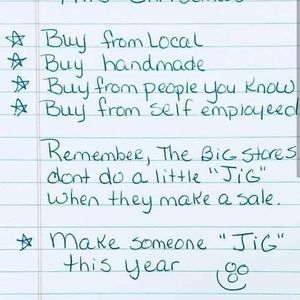 Buy from Local
Buy handmade
Buy from people you know
Buy from self employeed
Remember, The BiG stores
dont do a little "JiG"
when they make a sale.
Make someone "JiG"
this year